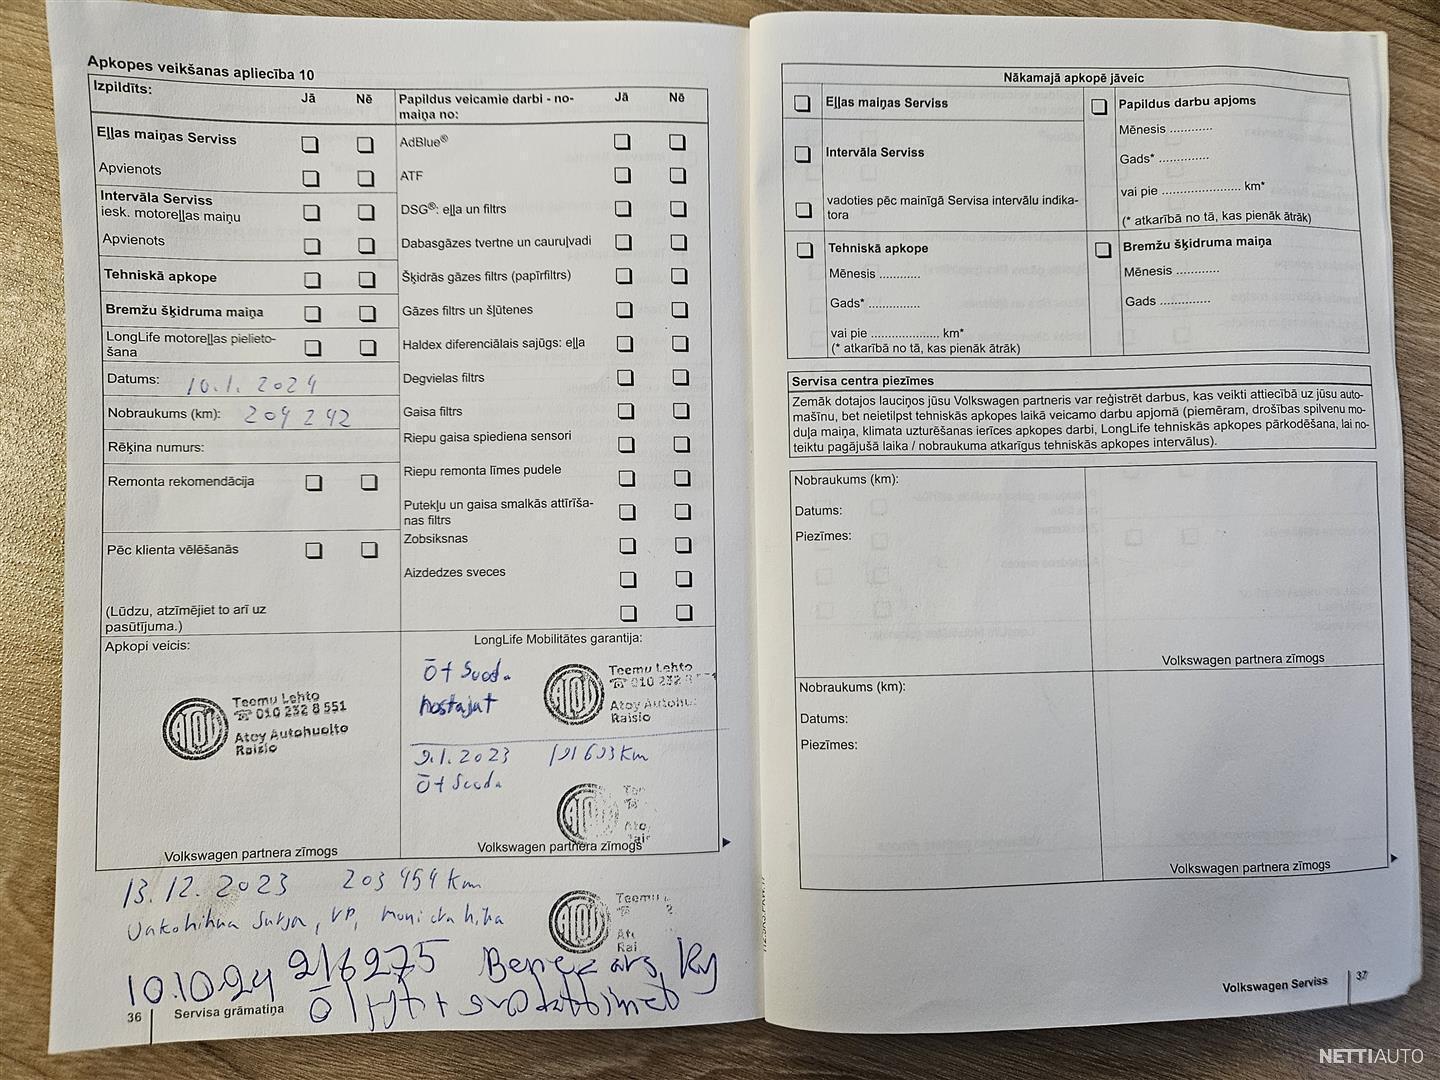 Apkopes veikšanas apliecība 10
Izpildīts:
Jā
Nē
Papildus veicamie darbi - no-
maiņa no:
Jā
Nē
Eļļas maiņas Serviss
Apvienots
Intervāla Serviss
iesk. motoreļļas maiņu
Apvienots
Tehniskā apkope
Bremžu šķidruma maiņa
LongLife motoreļļas pielieto-
šana
Datums: 10.1.2024
Nobraukums (km): 204 242
Rēķina numurs:
Remonta rekomendācija
Pēc klienta vēlēšanās
(Lūdzu, atzīmējiet to arī uz
pasūtījuma.)
AdBlue®
ATF
DSG®: eļļa un filtrs
Dabasgāzes tvertne un cauruļvadi
Šķidrās gāzes filtrs (papīrfiltrs)
Gāzes filtrs un šļūtenes
Haldex diferenciālais sajūgs: eļļa
Degvielas filtrs
Gaisa filtrs
Riepu gaisa spiediena sensori
Riepu remonta līmes pudele
Putekļu un gaisa smalkās attīrīša-
nas filtrs
Zobsiksnas
Aizdedzes sveces
Apkopi veicis:
ATOY
Teemu Lehto
☎ 010 232 8 551
Atoy Autohuolto
Raisio
Volkswagen partnera zīmogs
LongLife Mobilitātes garantija:
ATOY
Teemu Lehto
Atoy Autohu
Raisio
9.1.2023
ATOY
Volkswagen partnera zīmogs
13.12.2023 203 454 km
ATOY
Teemu
10.10.24 216275
36
Servisa grāmatiņa
Nākamajā apkopē jāveic
Eļļas maiņas Serviss
Intervāla Serviss
vadoties pēc mainīgā Servisa intervālu indika-
tora
Papildus darbu apjoms
Mēnesis ............
Gads* ..............
vai pie ....................... km*
(* atkarībā no tā, kas pienāk ātrāk)
Tehniskā apkope
Mēnesis ...........
Gads* ..............
vai pie .................... km*
(* atkarībā no tā, kas pienāk ātrāk)
Bremžu šķidruma maiņa
Mēnesis ............
Gads ..............
Servisa centra piezīmes
Zemāk dotajos lauciņos jūsu Volkswagen partneris var reģistrēt darbus, kas veikti attiecībā uz jūsu auto-
mašīnu, bet neietilpst tehniskās apkopes laikā veicamo darbu apjomā (piemēram, drošības spilvenu mo-
duļa maiņa, klimata uzturēšanas ierīces apkopes darbi, LongLife tehniskās apkopes pārkodēšana, lai no-
teiktu pagājušā laika / nobraukuma atkarīgus tehniskās apkopes intervālus).
Nobraukums (km):
Datums:
Piezīmes:
Volkswagen partnera zīmogs
Nobraukums (km):
Datums:
Piezīmes:
Volkswagen partnera zīmogs
Volkswagen Serviss
37
NETTIAUTO